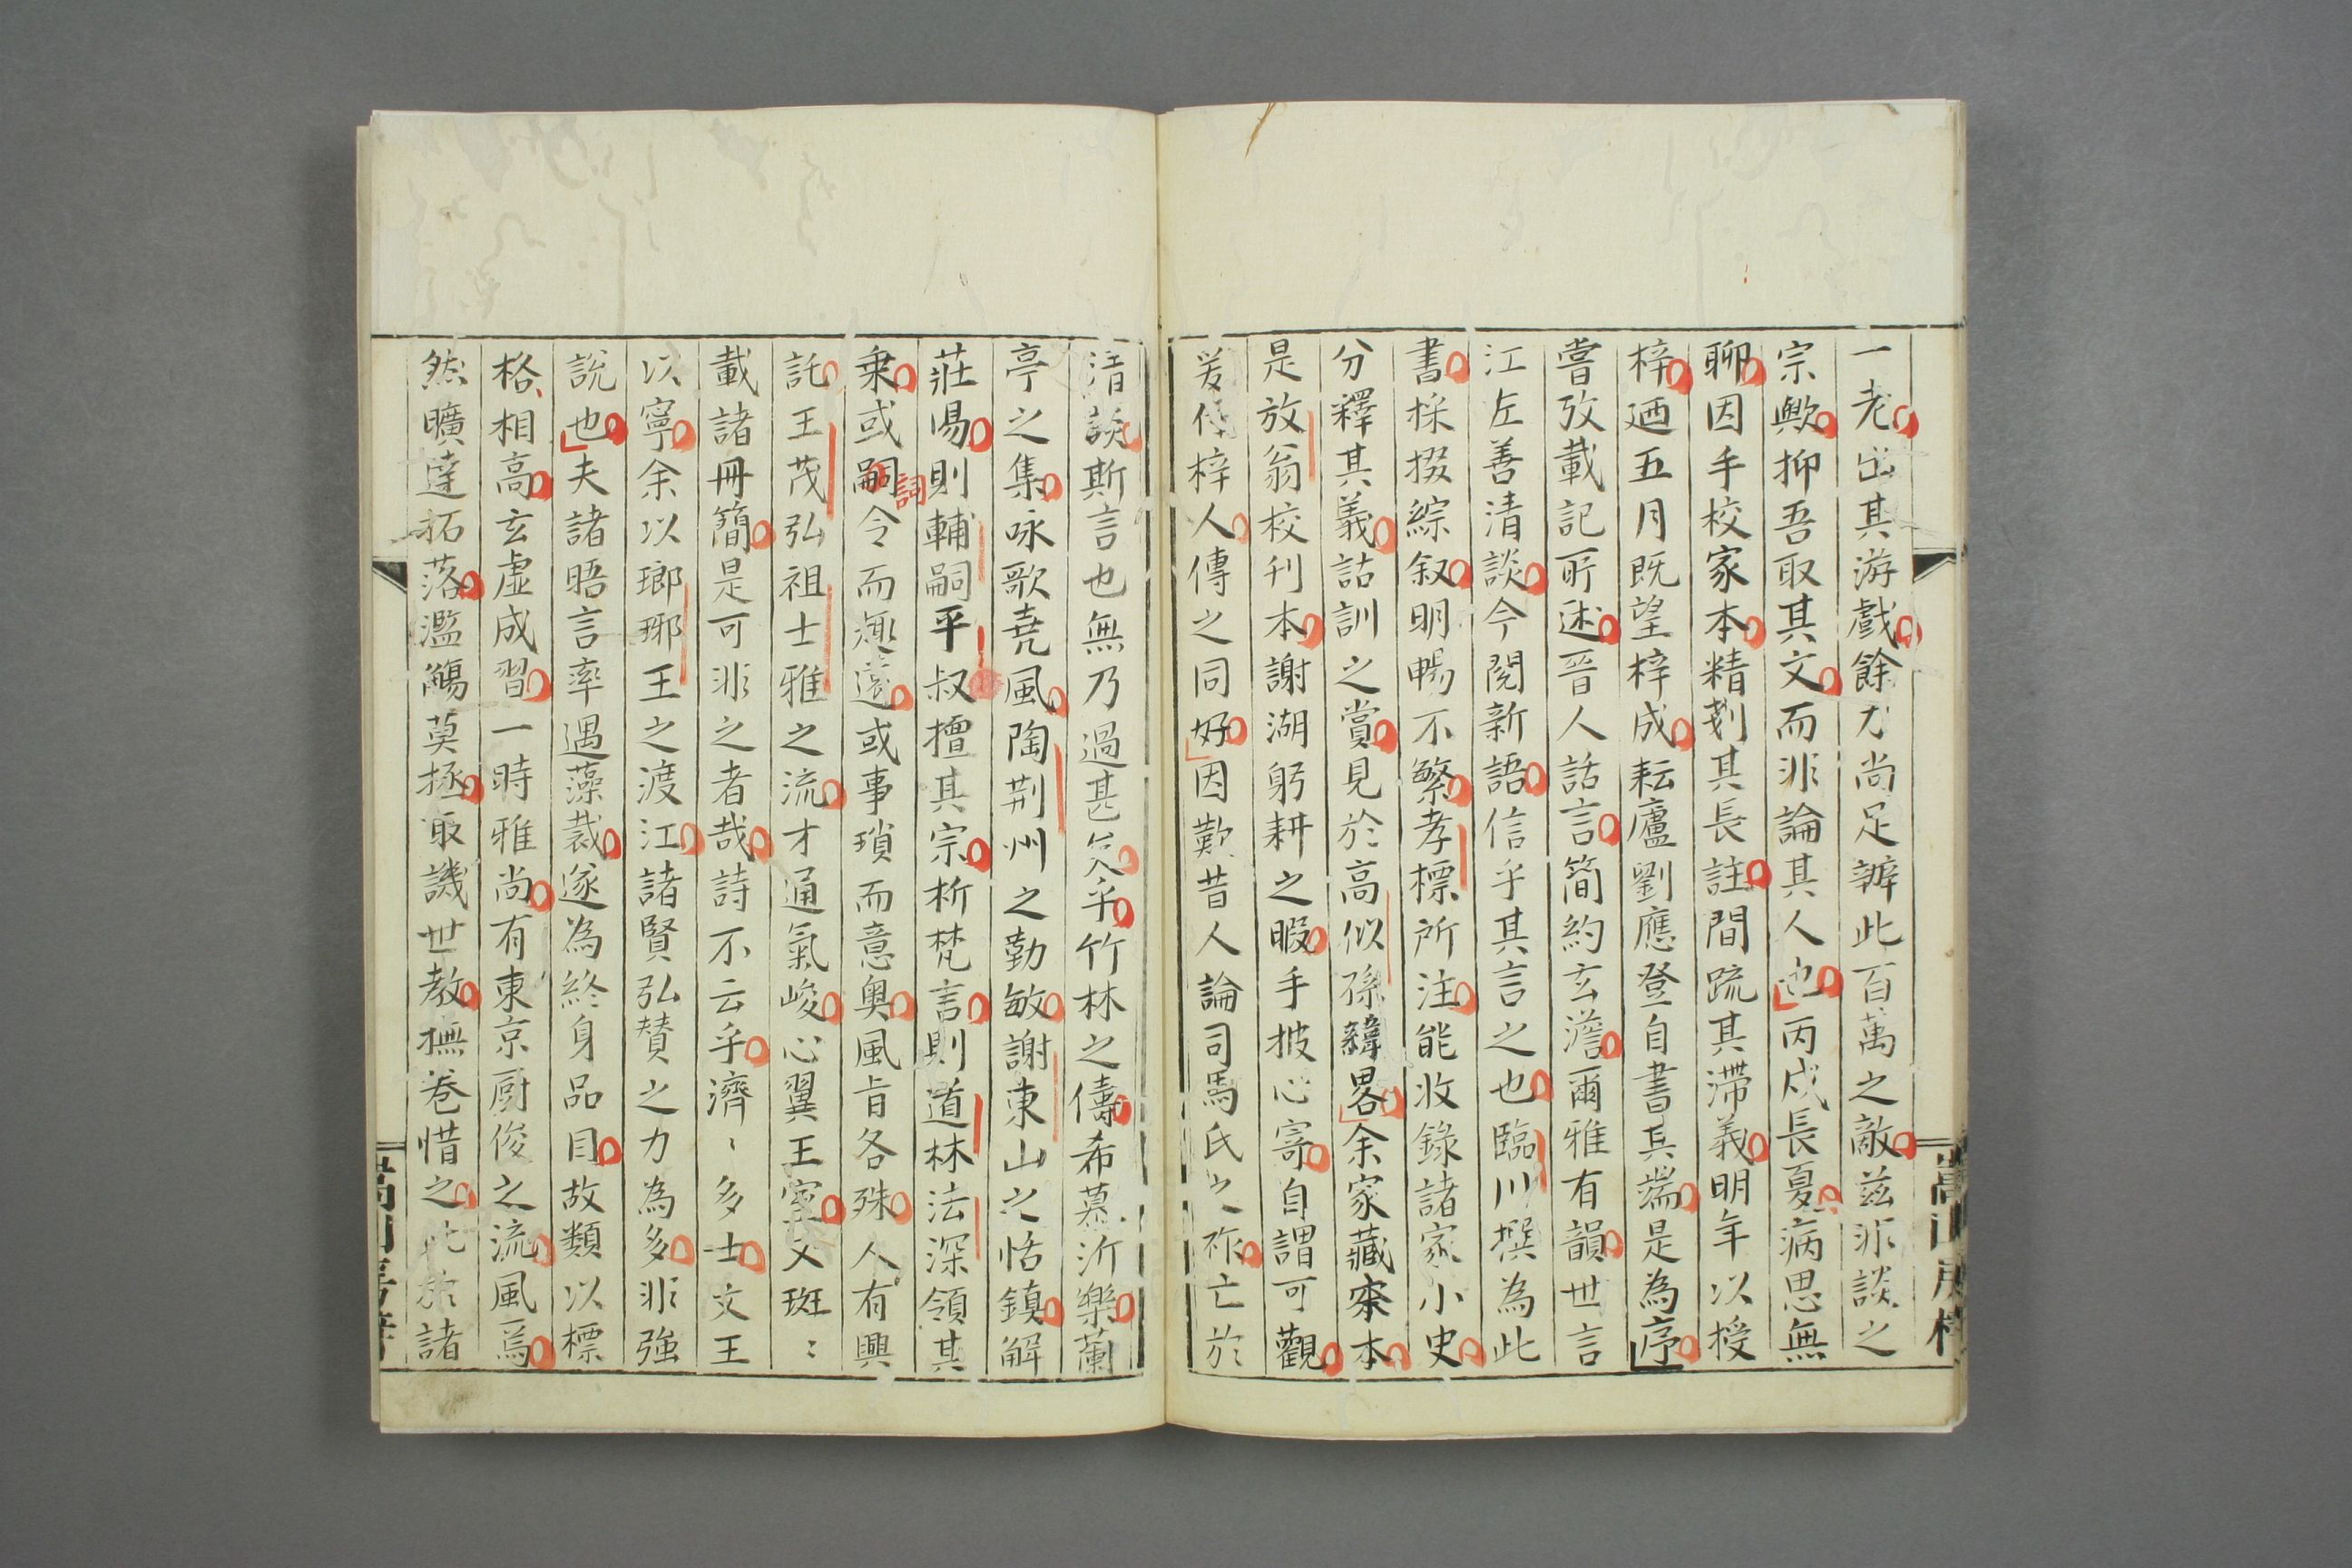 一老出其游戲餘力尚足辦此百萬之敵茲非談之
宗歟抑吾取其文而非論其人也丙戌長夏病思無
聊因手校家本精剗其長註間疏其滯義明年以授
梓廼五月既望梓成耘廬劉應登自書其端是為序
嘗攷載記所述晉人話言簡約玄澹爾雅有韻世言
江左善清談今閱新語信乎其言之也臨川撰為此
書採掇綜叙明暢不繁孝標所注能收錄諸家小史
分釋其義詁訓之賞見於高似孫緯畧余家藏宋本
是放翁校刊本謝湖躬耕之暇手披心寄自謂可觀
爰付梓人傳之同好因歎昔人論司馬氏之祚亡於
清談斯言也無乃過甚矣乎竹林之儔希慕沂樂蘭
亭之集咏歌堯風陶荆州之勤敏謝東山之恬鎮解
莊昜則輔嗣平叔擅其宗析梵言則道林法深領其
乗或嗣令而趣遠或事瑣而意奥風旨各殊人有興
詞
託王茂弘祖士雅之流才通氣峻心翼王室又斑〻
載諸冊簡是可非之者哉詩不云乎濟〻多士文王
以寧余以瑯琊王之渡江諸賢弘賛之力為多非強
說也夫諸晤言率遇藻裁遂為終身品目故類以標
格相高玄虚成習一時雅尚有東京厨俊之流風焉
然曠達拓落濫觴莫拯取譏世教撫卷惜之此於諸